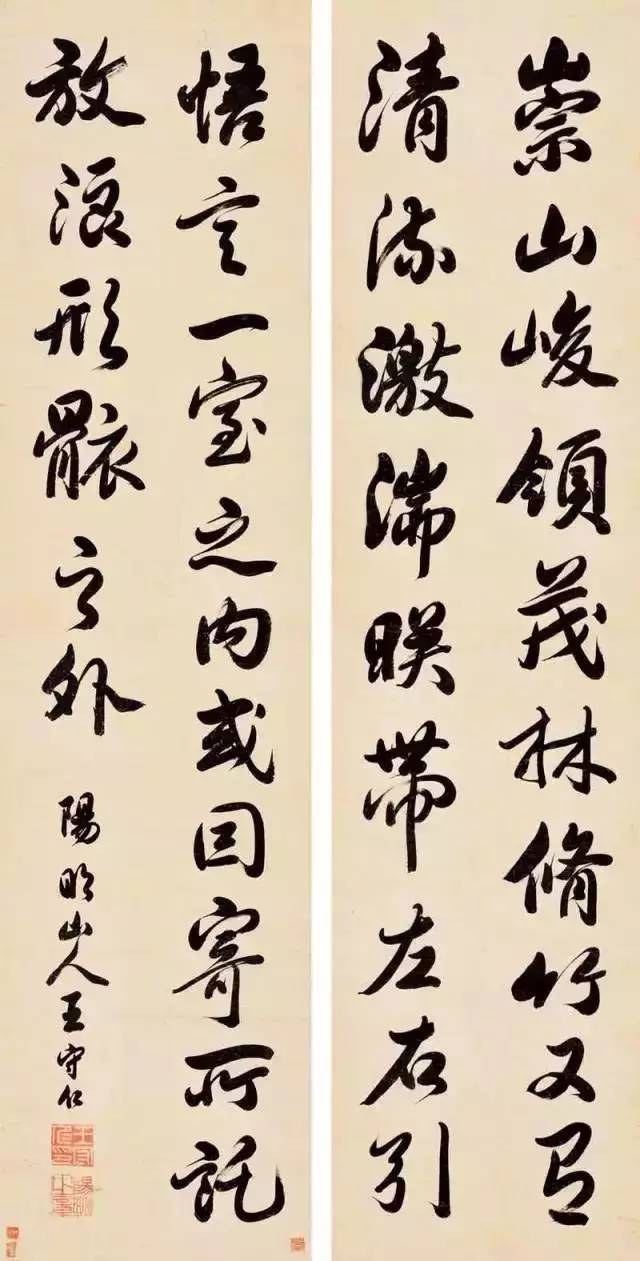 崇山峻領茂林脩竹又有
清流激湍暎帶左右引
悟言一室之内或因寄所託
放浪形骸之外
陽明山人王守仁